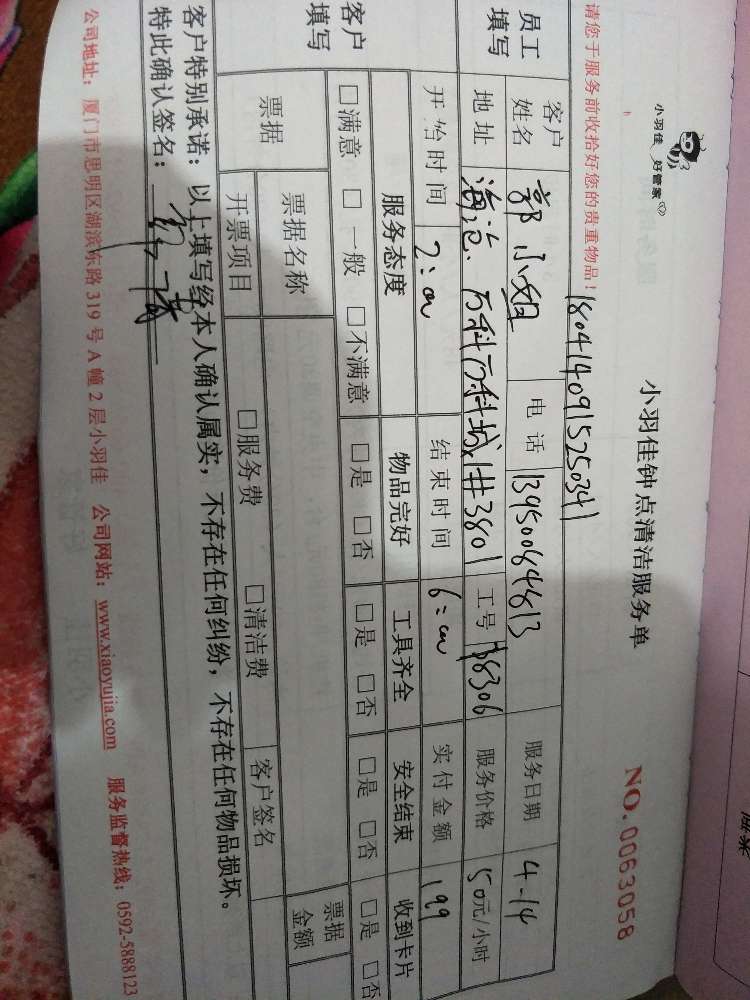 小羽佳 好管家
小羽佳钟点清洁服务单
NO.0063058
请您于服务前收拾好您的贵重物品！
1804140915250341
员工填写
客户姓名 郭小姐 电话 13950064613 服务日期 4-14
地址 海沧、万科万科城1#3801 工号 38306 服务价格 50元/小时
开始时间 2:00 结束时间 6:00 实付金额 199
客户填写
服务态度 物品完好 工具齐全 安全结束 收到卡片
□满意 □一般 □不满意 □是 □否 □是 □否 □是 □否 □是 □否
票据 票据名称 票据金额
开票项目 □服务费 □清洁费 客户签名
客户特别承诺：以上填写经本人确认属实，不存在任何纠纷，不存在任何物品损坏。
特此确认签名：
公司地址：厦门市思明区湖滨东路319号A幢2层小羽佳 公司网站：www.xiaoyujia.com 服务监督热线：0592-5888123